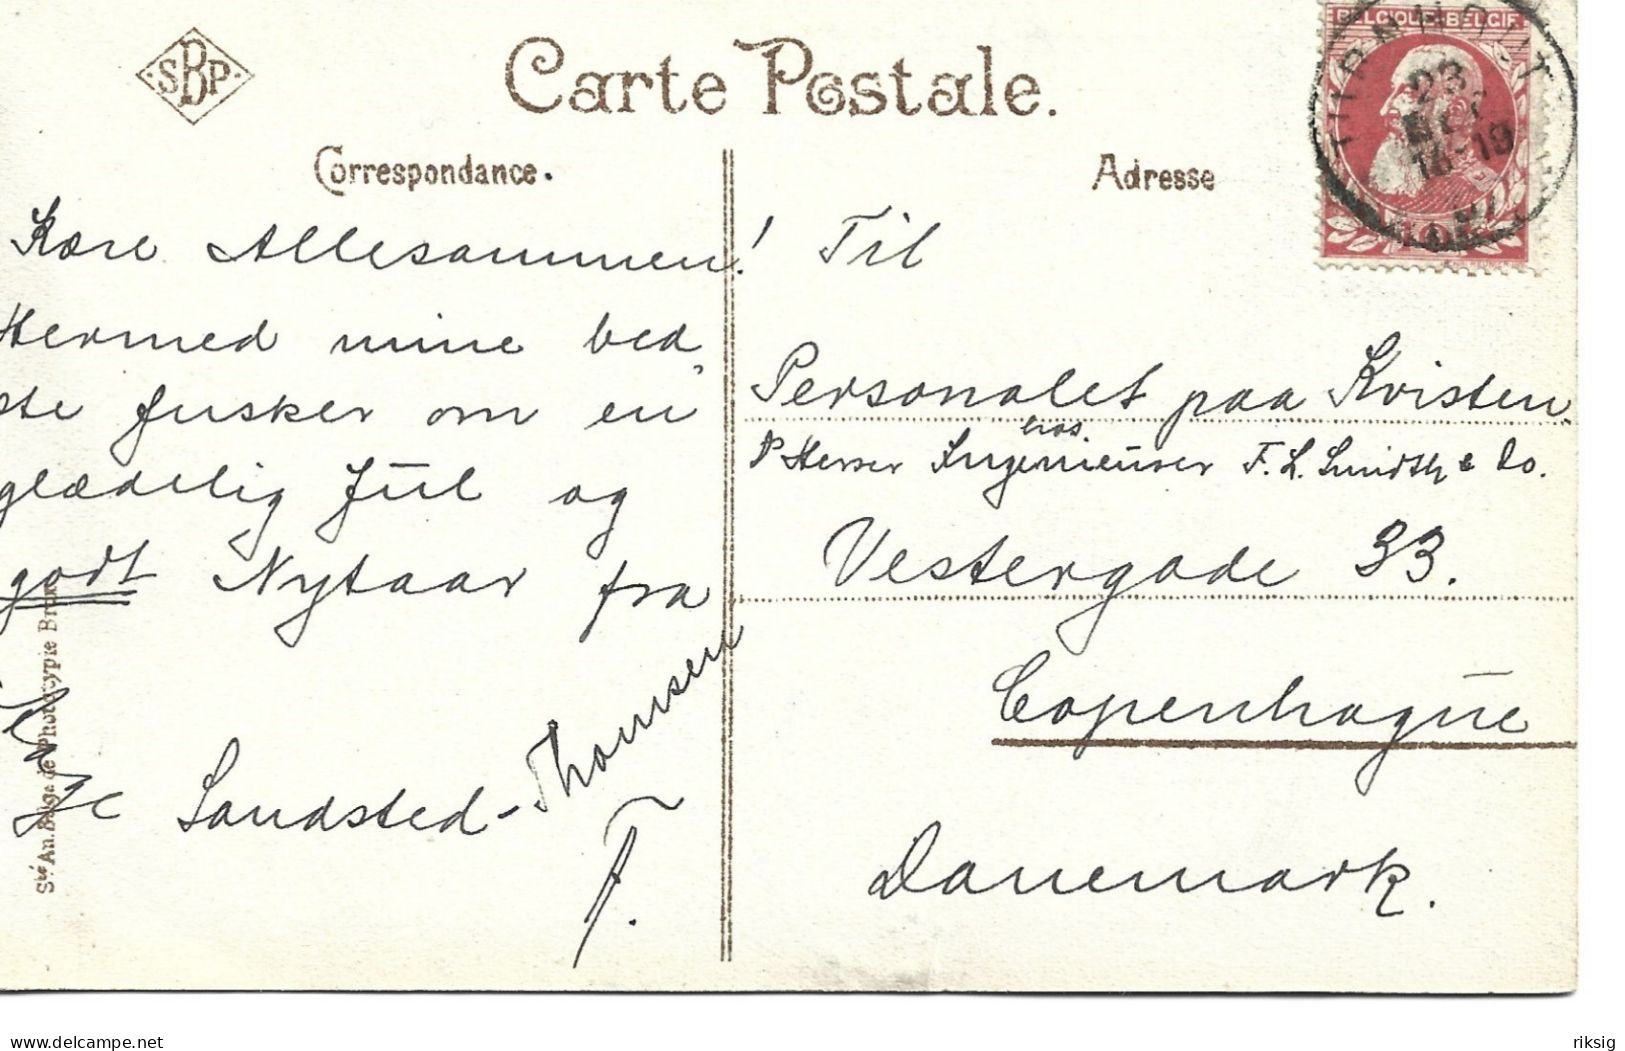 SBP
Carte Postale.
Correspondance.
Adresse
BELGIQUE-BELGIE
TURNHOUT
23
18-19
Kære Allesammen!
Hermed mine bed„
ste Ønsker om en
glædelig Jul og
godt Nytaar fra
Aage Sandsted-Thomsen
Til
Personalet paa Kvisten
hos.
P Herrer Ingenieurer F. L. Smidth & Co.
Vestergade 33.
Copenhague
Danemark.
Sté An. Belge de Phototypie Brux
www.delcampe.net
riksig